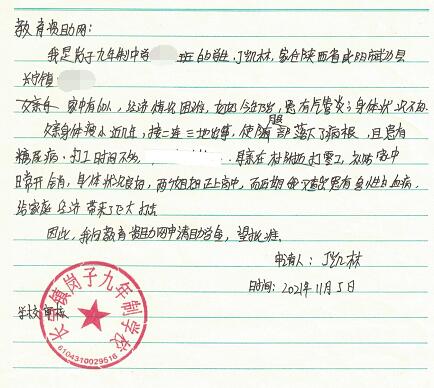 教育资助网:
我是岗子九年制中 班6的学生, 丁凯林, 家住陕西省咸阳市武功县
长宁镇
家中有6口人, 经济情况困难, 患有气管炎, 身体状况不好.
父亲身体 近几年, 接二连三地出事, 使腿部落下了病根, 且患有
糖尿病. 打工时间不多, 母亲在 打零工, 家中
日常开销, 身体状况 两个姐姐正上高中, 患有急性白血病,
给家庭经济带来了巨大打击
因此, 我向教育资助网申请助学金, 望批准.
申请人: 丁凯林
时间: 2021年11月5日
学校审核
长宁镇岗子九年制学校
6104310029516